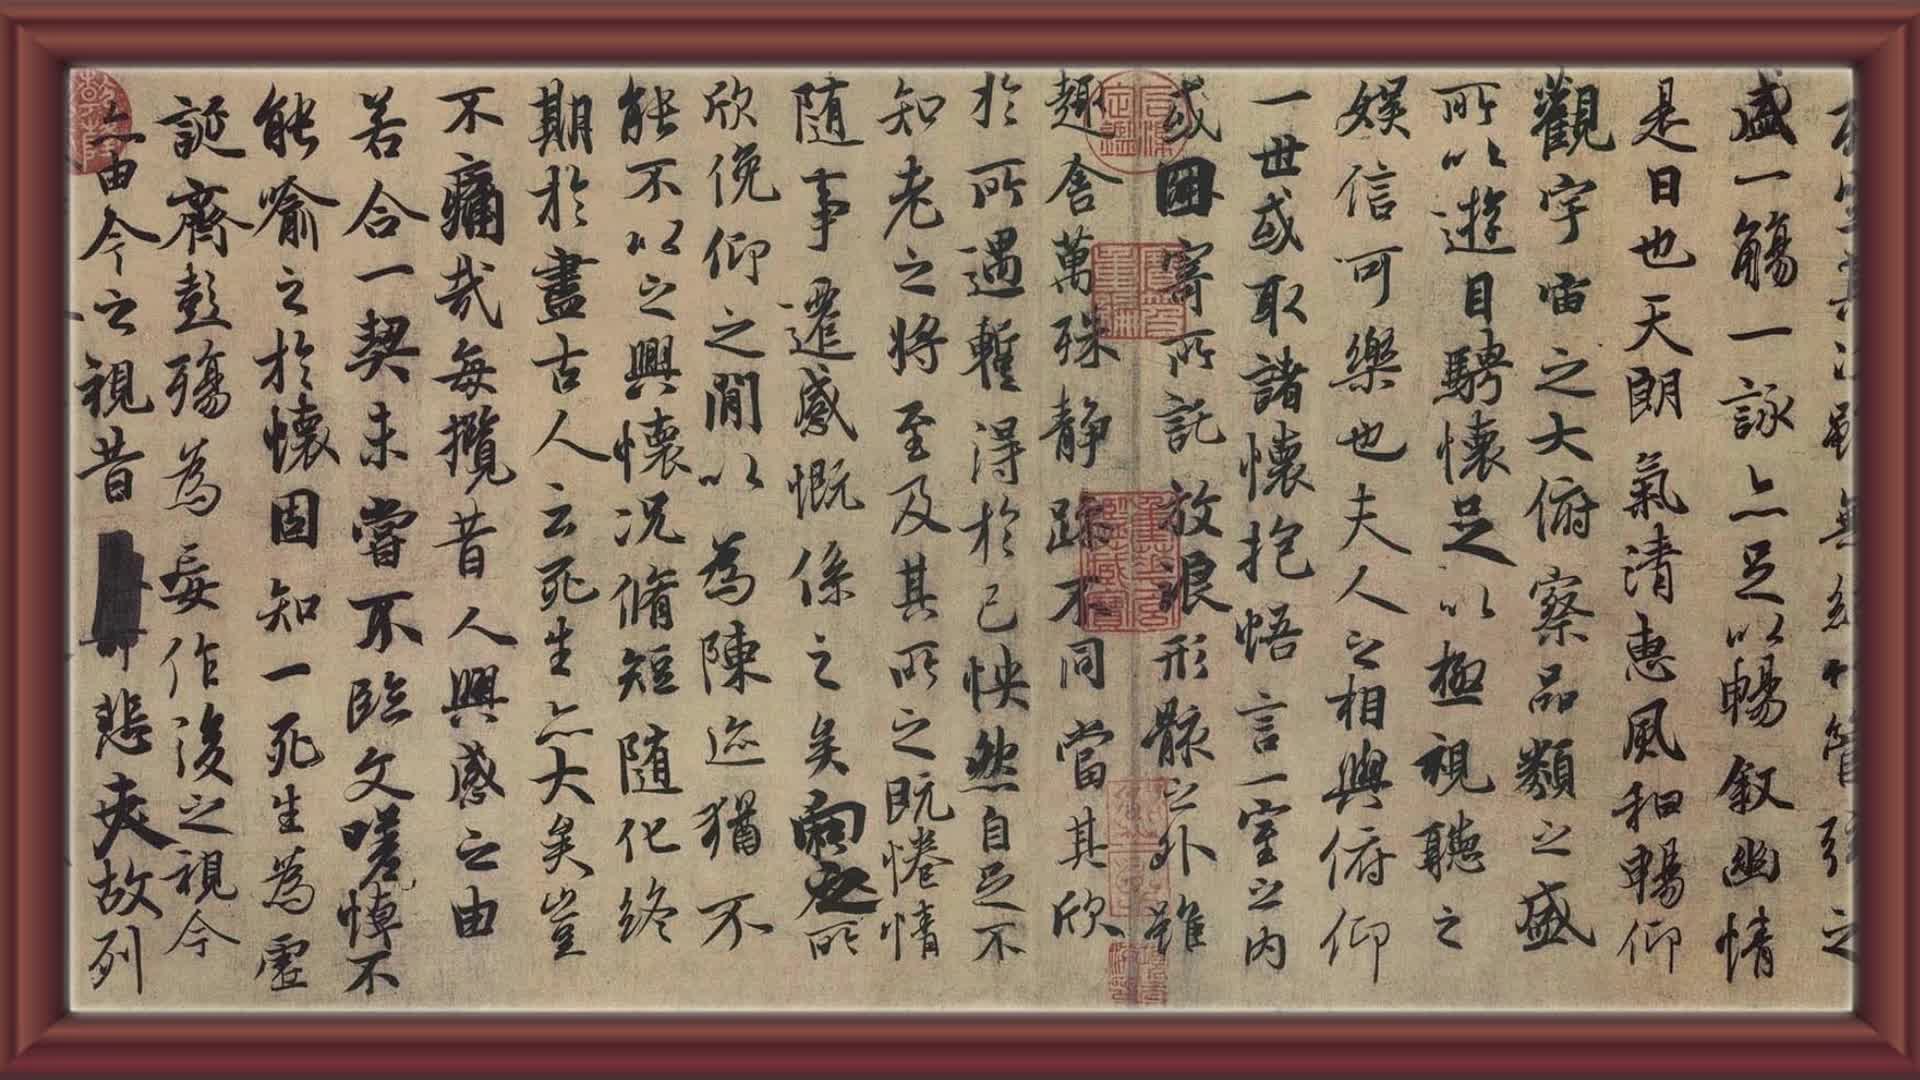 之
盛一觴一詠亦足以暢敘幽情
是日也天朗氣清惠風和暢仰
觀宇宙之大俯察品類之盛
所以遊目騁懷足以極視聽之
娛信可樂也夫人之相與俯仰
一世或取諸懷抱悟言一室之內
或因寄所託放浪形骸之外雖
趣舍萬殊靜躁不同當其欣
於所遇暫得於己怏然自足不
知老之將至及其所之既惓情
隨事遷感慨係之矣向之所
欣俛仰之閒以為陳迹猶不
能不以之興懷況脩短隨化終
期於盡古人云死生亦大矣豈
不痛哉每攬昔人興感之由
若合一契未嘗不臨文嗟悼不
能喻之於懷固知一死生為虛
誕齊彭殤為妄作後之視今
亦由今之視昔悲夫故列